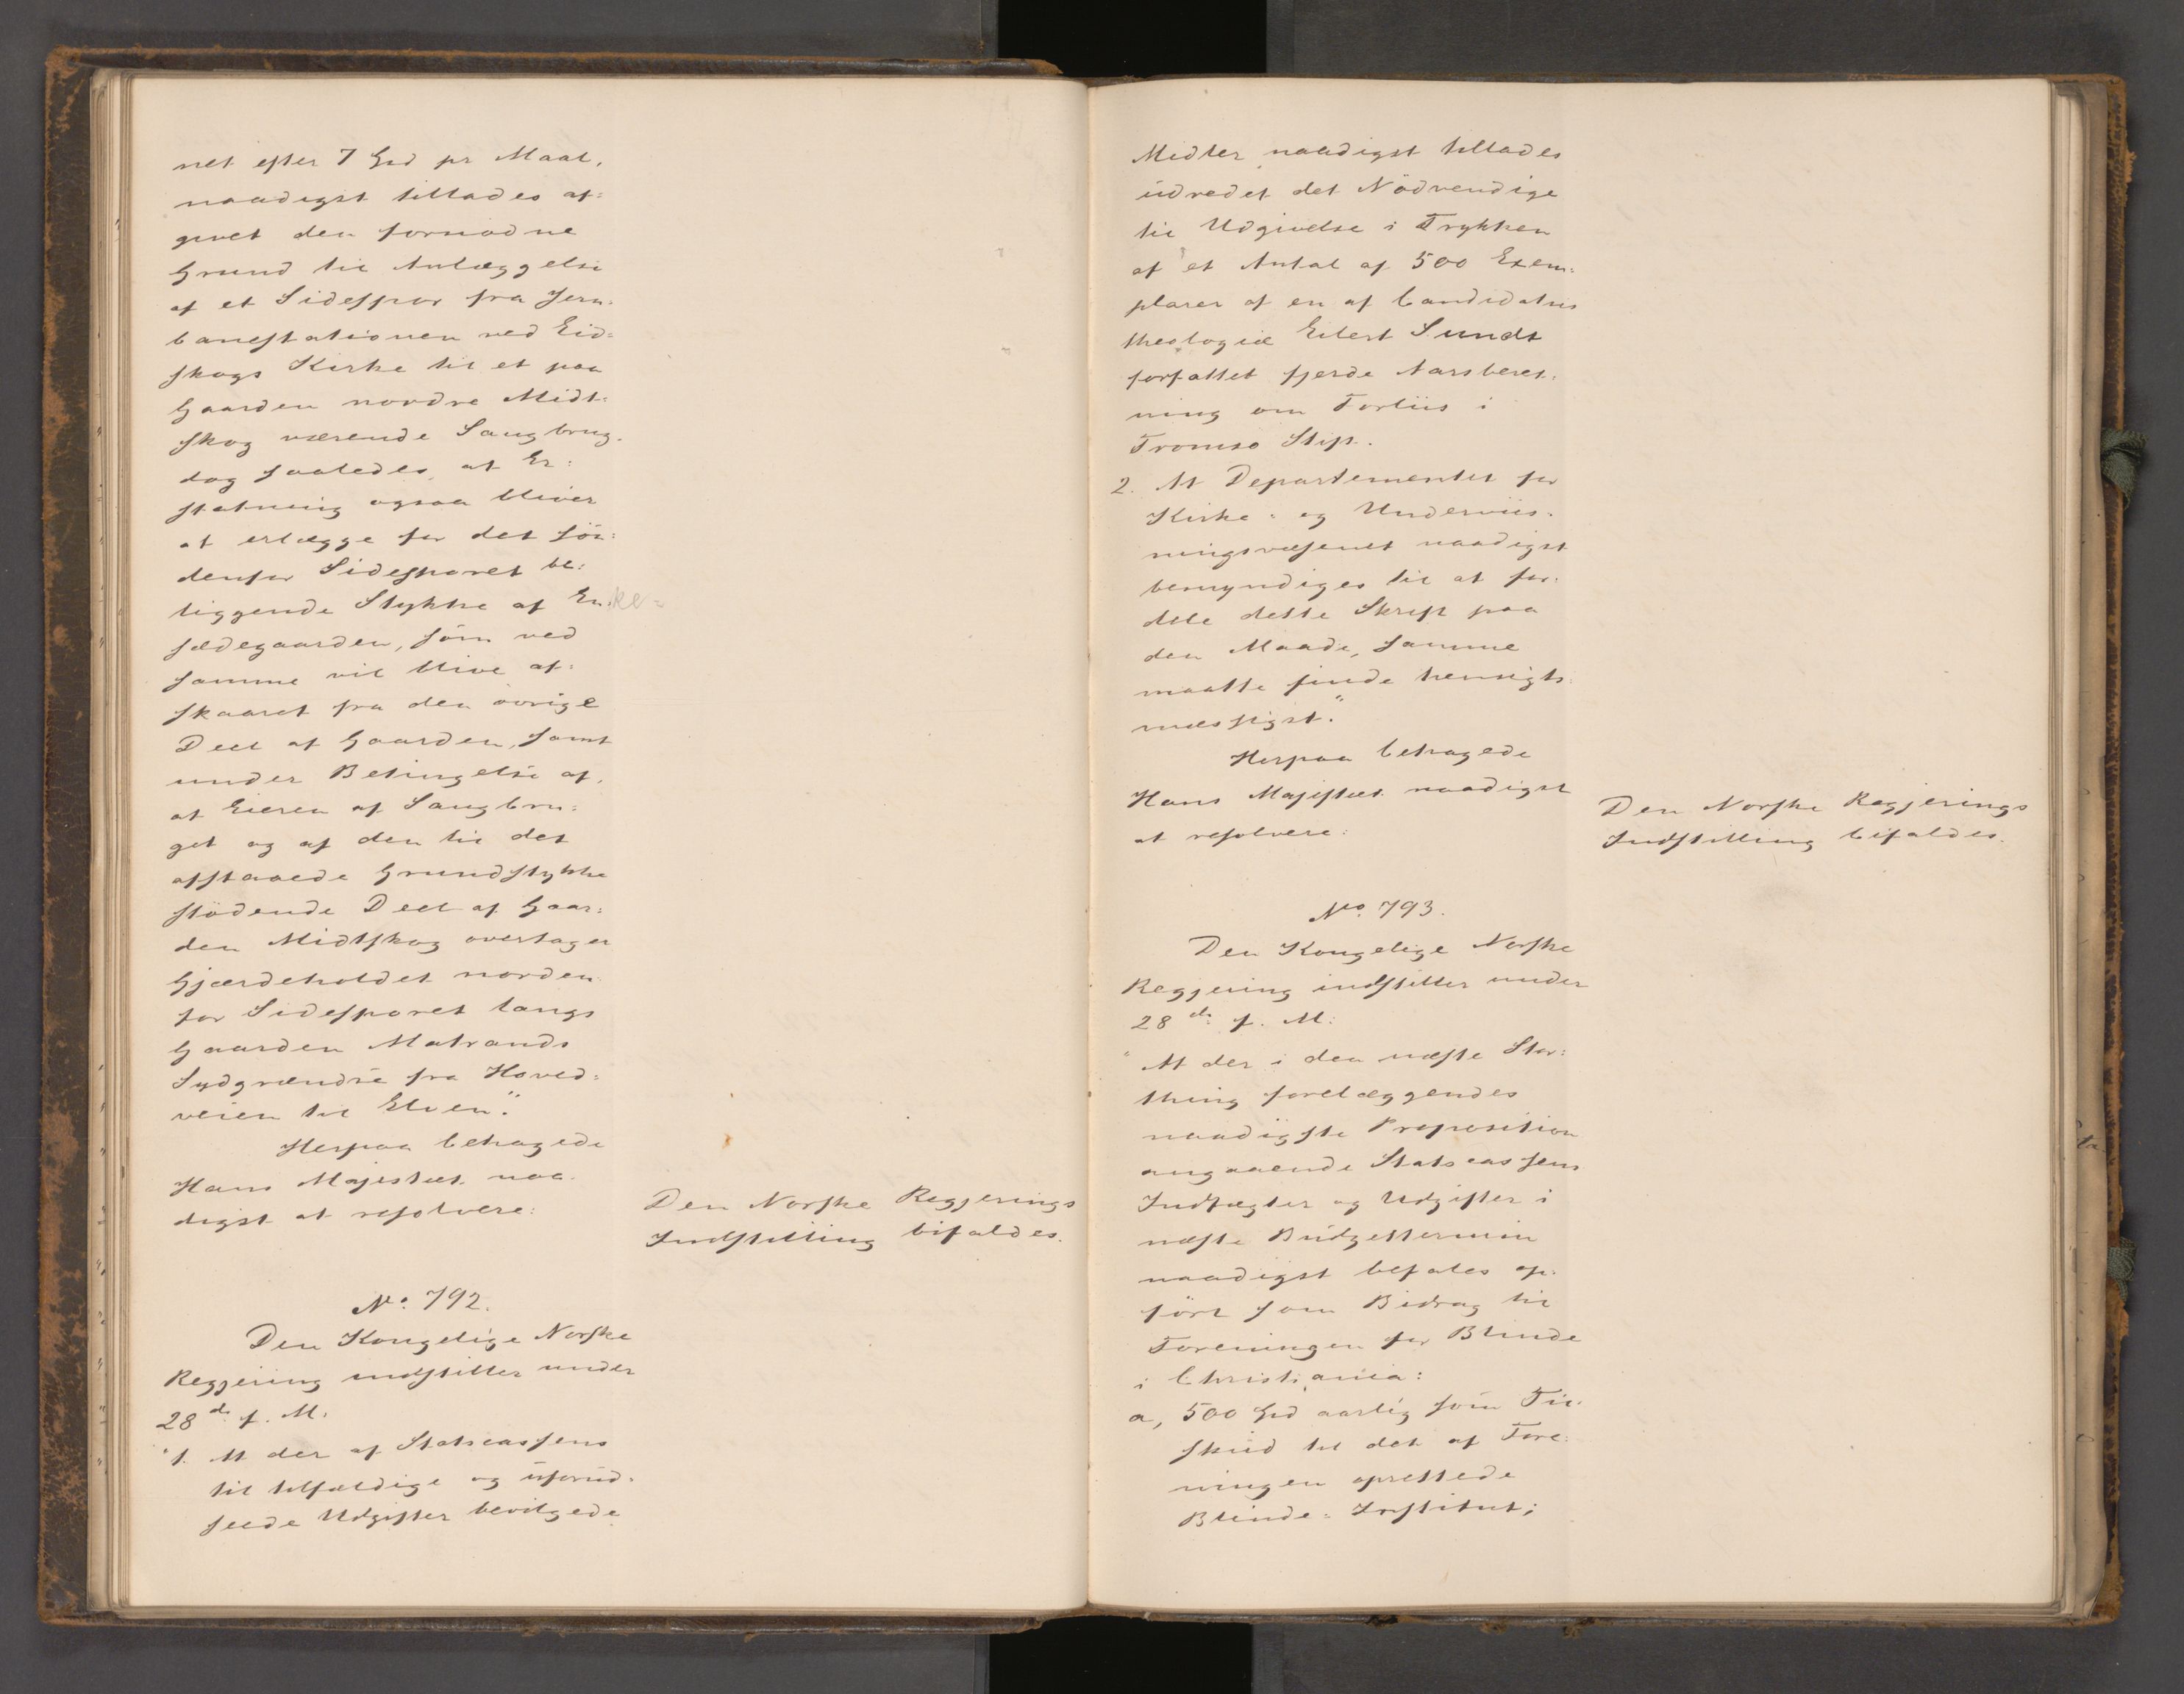 net efter 7 Spd pr Maal,
naadigst tillades af=
givet den fornødne
Grund til Anlæggelse
af et Sidespor fra Jern=
banestationen ved Eid=
skogs Kirke til et paa
Gaarden nordre Midt=
skog værende Saugbrug,
dog saaledes, at Er=
statning ogsaa bliver
at erlægge for det sön=
denfor Sidesporet be=
liggende Stykke af En=ke=
sædegaarden, som ved
samme vil blive af=
skaaret fra den övrige
Deel af Gaarden, samt
under Betingelse af,
at Eieren af Saugbru=
get og af den til det
afstaaede Grundstykke
stödende Deel af Gaar=
den Midtskog overtager
Gjærdeholdet norden=
for Sidesporet langs
Gaarden Matrands
Sydgrændse fra Hoved=
veien til Elven".
Herpaa behagede
Hans Majestæt naa=
digst at resolvere:
Den Norske Regjerings
Indstilling bifaldes.
No. 792.
Den Kongelige Norske
Regjering indstiller under
28de f. M.
"1. At der af Statscassens
til tilfældige og uforud=
seede Udgifter bevilgede
Midler naadigst tillades
udredet det Nödvendige
til Udgivelse i Trykken
af et Antal af 500 Exem=
plarer af en af Candidatus
theologiæ Eilert Sundt
forfattet fjerde Aarsberet=
ning om Forliis i
Tromsø Stift.
2. At Departementet for
Kirke= og Underviis=
ningsvæsenet naadigst
bemyndiges til at for=
dele dette Skrift paa
den Maade, samme
maatte finde hensigts=
mæssigst."
Herpaa behagede
Hans Majestæt naadigst
at resolvere:
Den Norske Regjerings
Indstilling bifaldes.
No. 793.
Den Kongelige Norske
Regjering indstiller under
28de f. M:
"At der i den næste Stor=
thing forelæggendes
naadigste Proposition
angaaende Statscassens
Indtægter og Udgifter i
næste Budgettermin
naadigst befales op=
fört som Bidrag til
Foreningen for Blinde
i Christiania:
a, 500 Spd aarlig som Til=
skud til det af Fore=
ningen oprettede
Blinde=Institut;